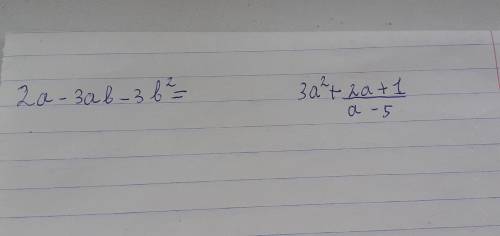 2a - 3ab - 3b² =
3a² + (2a + 1)/(a - 5)